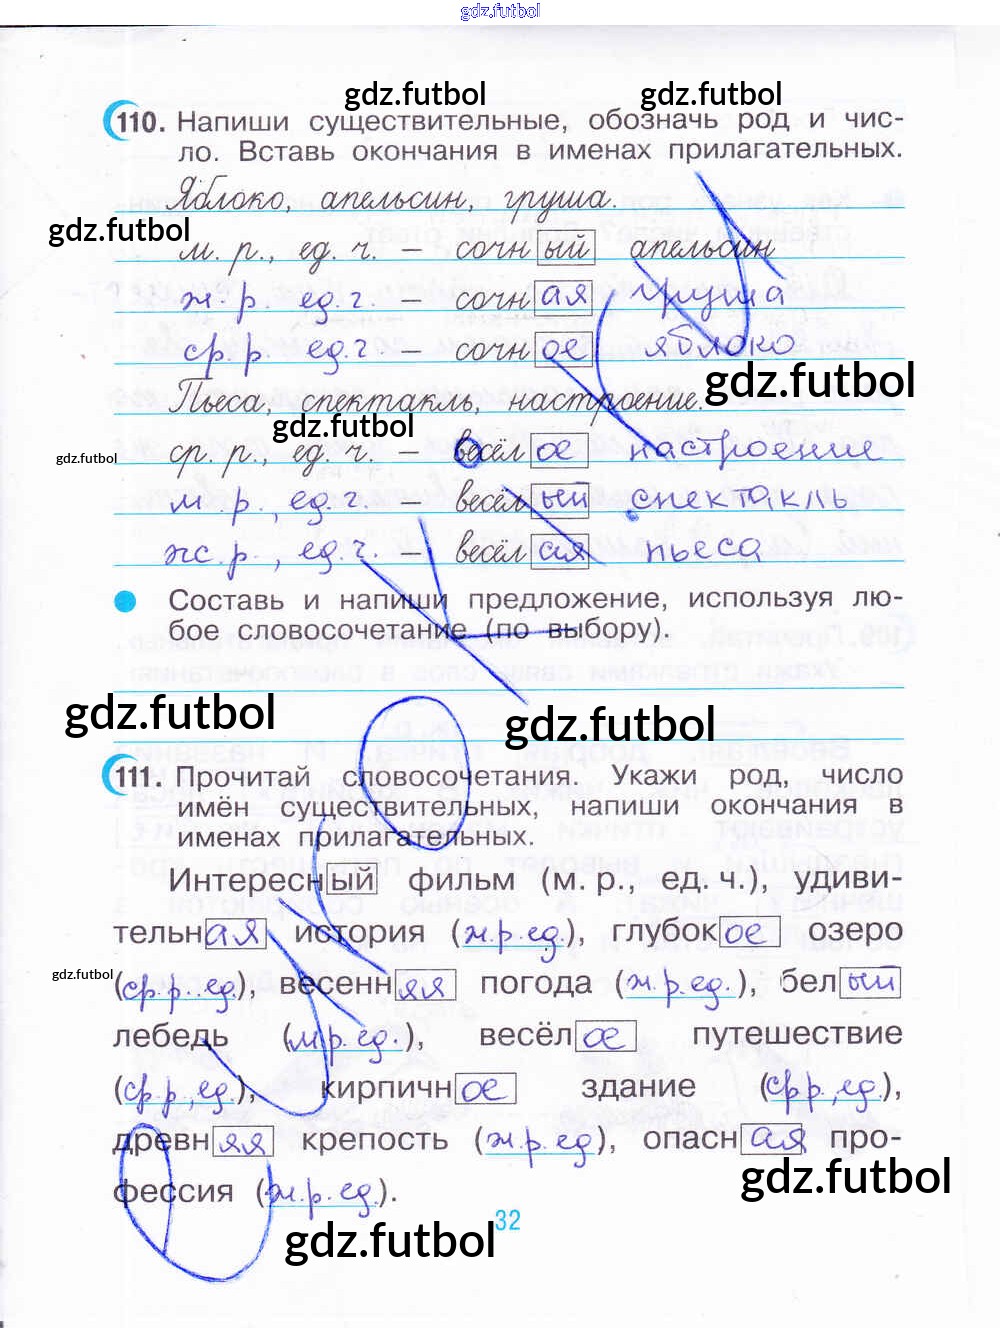 gdz.futbol
gdz.futbol gdz.futbol
110. Напиши существительные, обозначь род и чис-
ло. Вставь окончания в именах прилагательных.
Яблоко, апельсин, груша.
gdz.futbol
м. р., ед. ч. — сочный апельсин
ж. р. ед. ч. — сочная груша
ср. р. ед. ч — сочное яблоко
gdz.futbol
Пьеса, спектакль, настроение.
gdz.futbol
gdz.futbol
ср. р., ед. ч. — весёлое настроение
м. р., ед. ч. — весёлый спектакль
ж. р., ед. ч. — весёлая пьеса
Составь и напиши предложение, используя лю-
бое словосочетание (по выбору).
gdz.futbol gdz.futbol
111. Прочитай словосочетания. Укажи род, число
имён существительных, напиши окончания в
именах прилагательных.
Интересный фильм (м. р., ед. ч.), удиви-
тельная история (ж.р.ед.), глубокое озеро
gdz.futbol
(ср.р..ед.), весенняя погода (ж.р.ед.), белый
лебедь (м.р.ед.), весёлое путешествие
(ср.р,ед.), кирпичное здание (ср р.,ед.),
древняя крепость (ж.р.ед), опасная про-
gdz.futbol
фессия (ж.р.ед.).
32
gdz.futbol